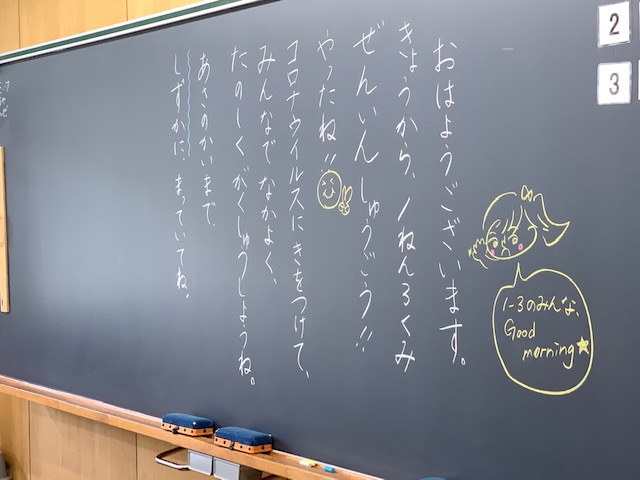 おはようございます。
きょうから、1ねん3くみ
ぜんいんしゅうごう!!
やったね!!
コロナウイルスにきをつけて、
みんなでなかよく、
たのしくがくしゅうしようね。
あさのかいまで、
しずかに、まっていてね。
1-3のみんな、
Good
morning
2
3